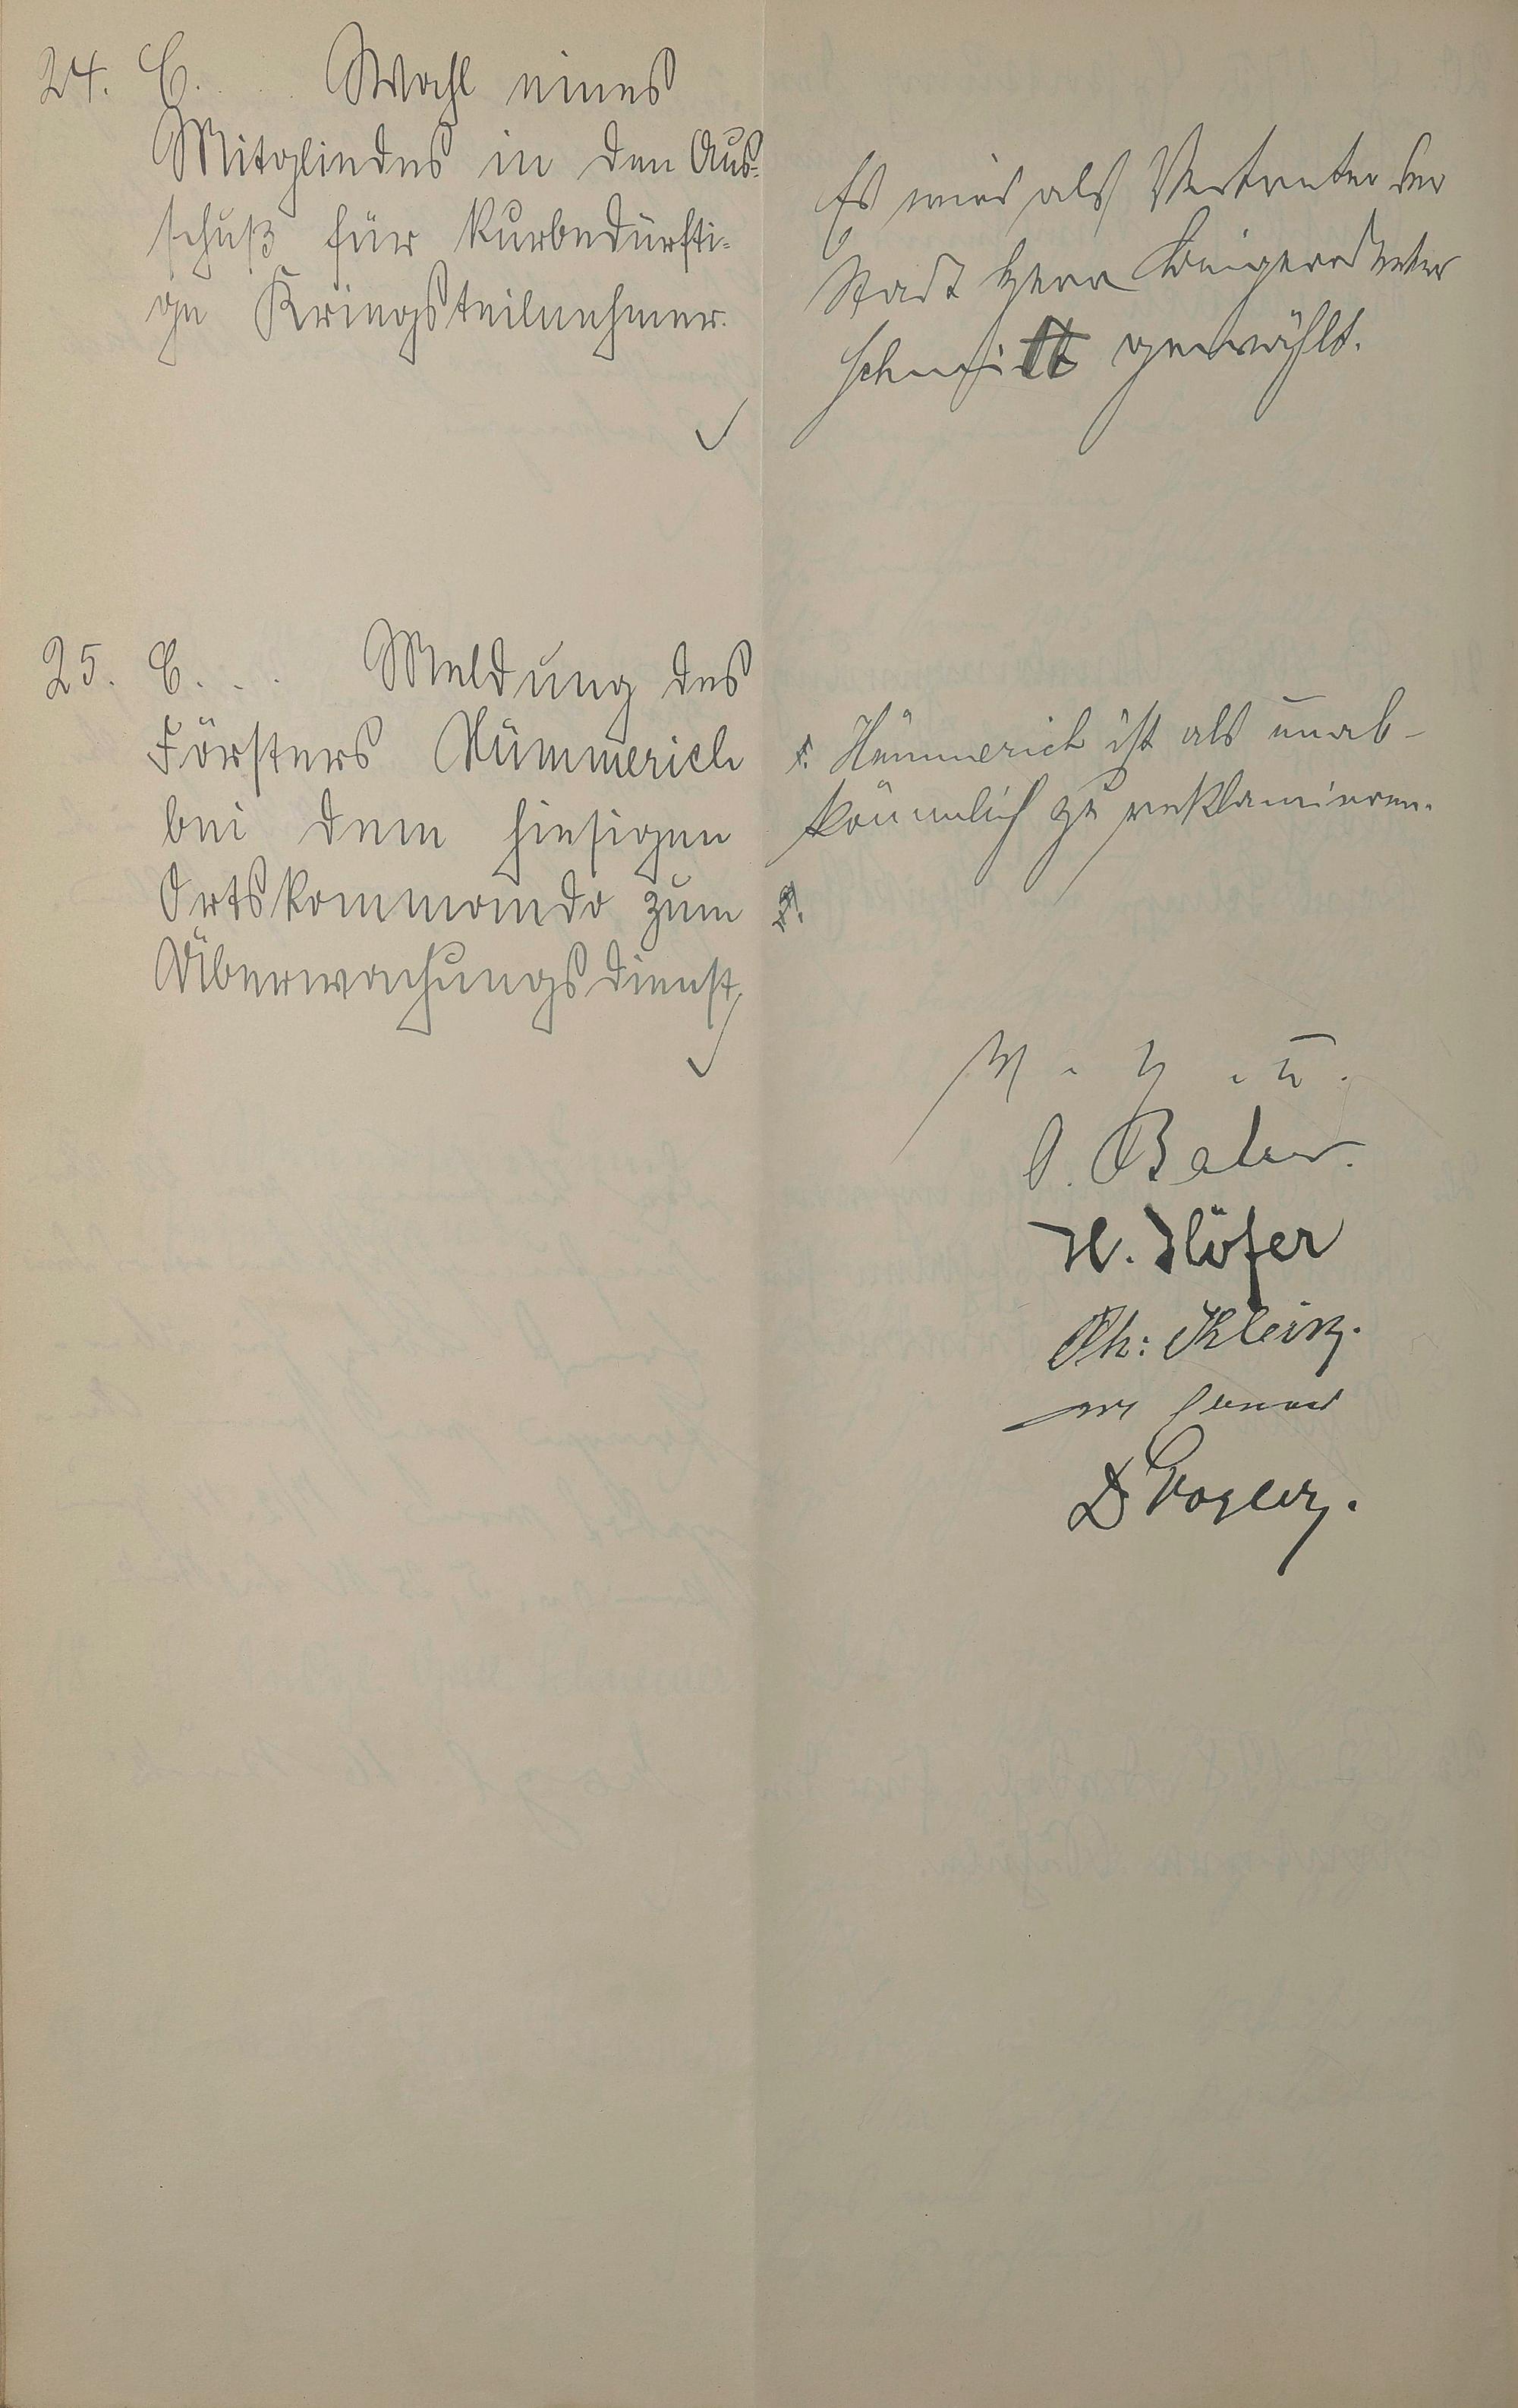 24. C. . . . Wahl eines
Mitgliedes in den Aus-
schuß für kurbedürfti-
ge Kriegsteilnehmer.
Es wird als Vertreter der
Stadt Herr
Schmitt gewählt.
25. C. . . . Meldung des
Försters Hümmerich
bei dem hiesigen
Ortskommando zum
Überwachungsdienst.
Hümmerich ist als unab-
kömmlich zu reklamieren.
v. g. u.
H. Höfer
Ph: Klein.